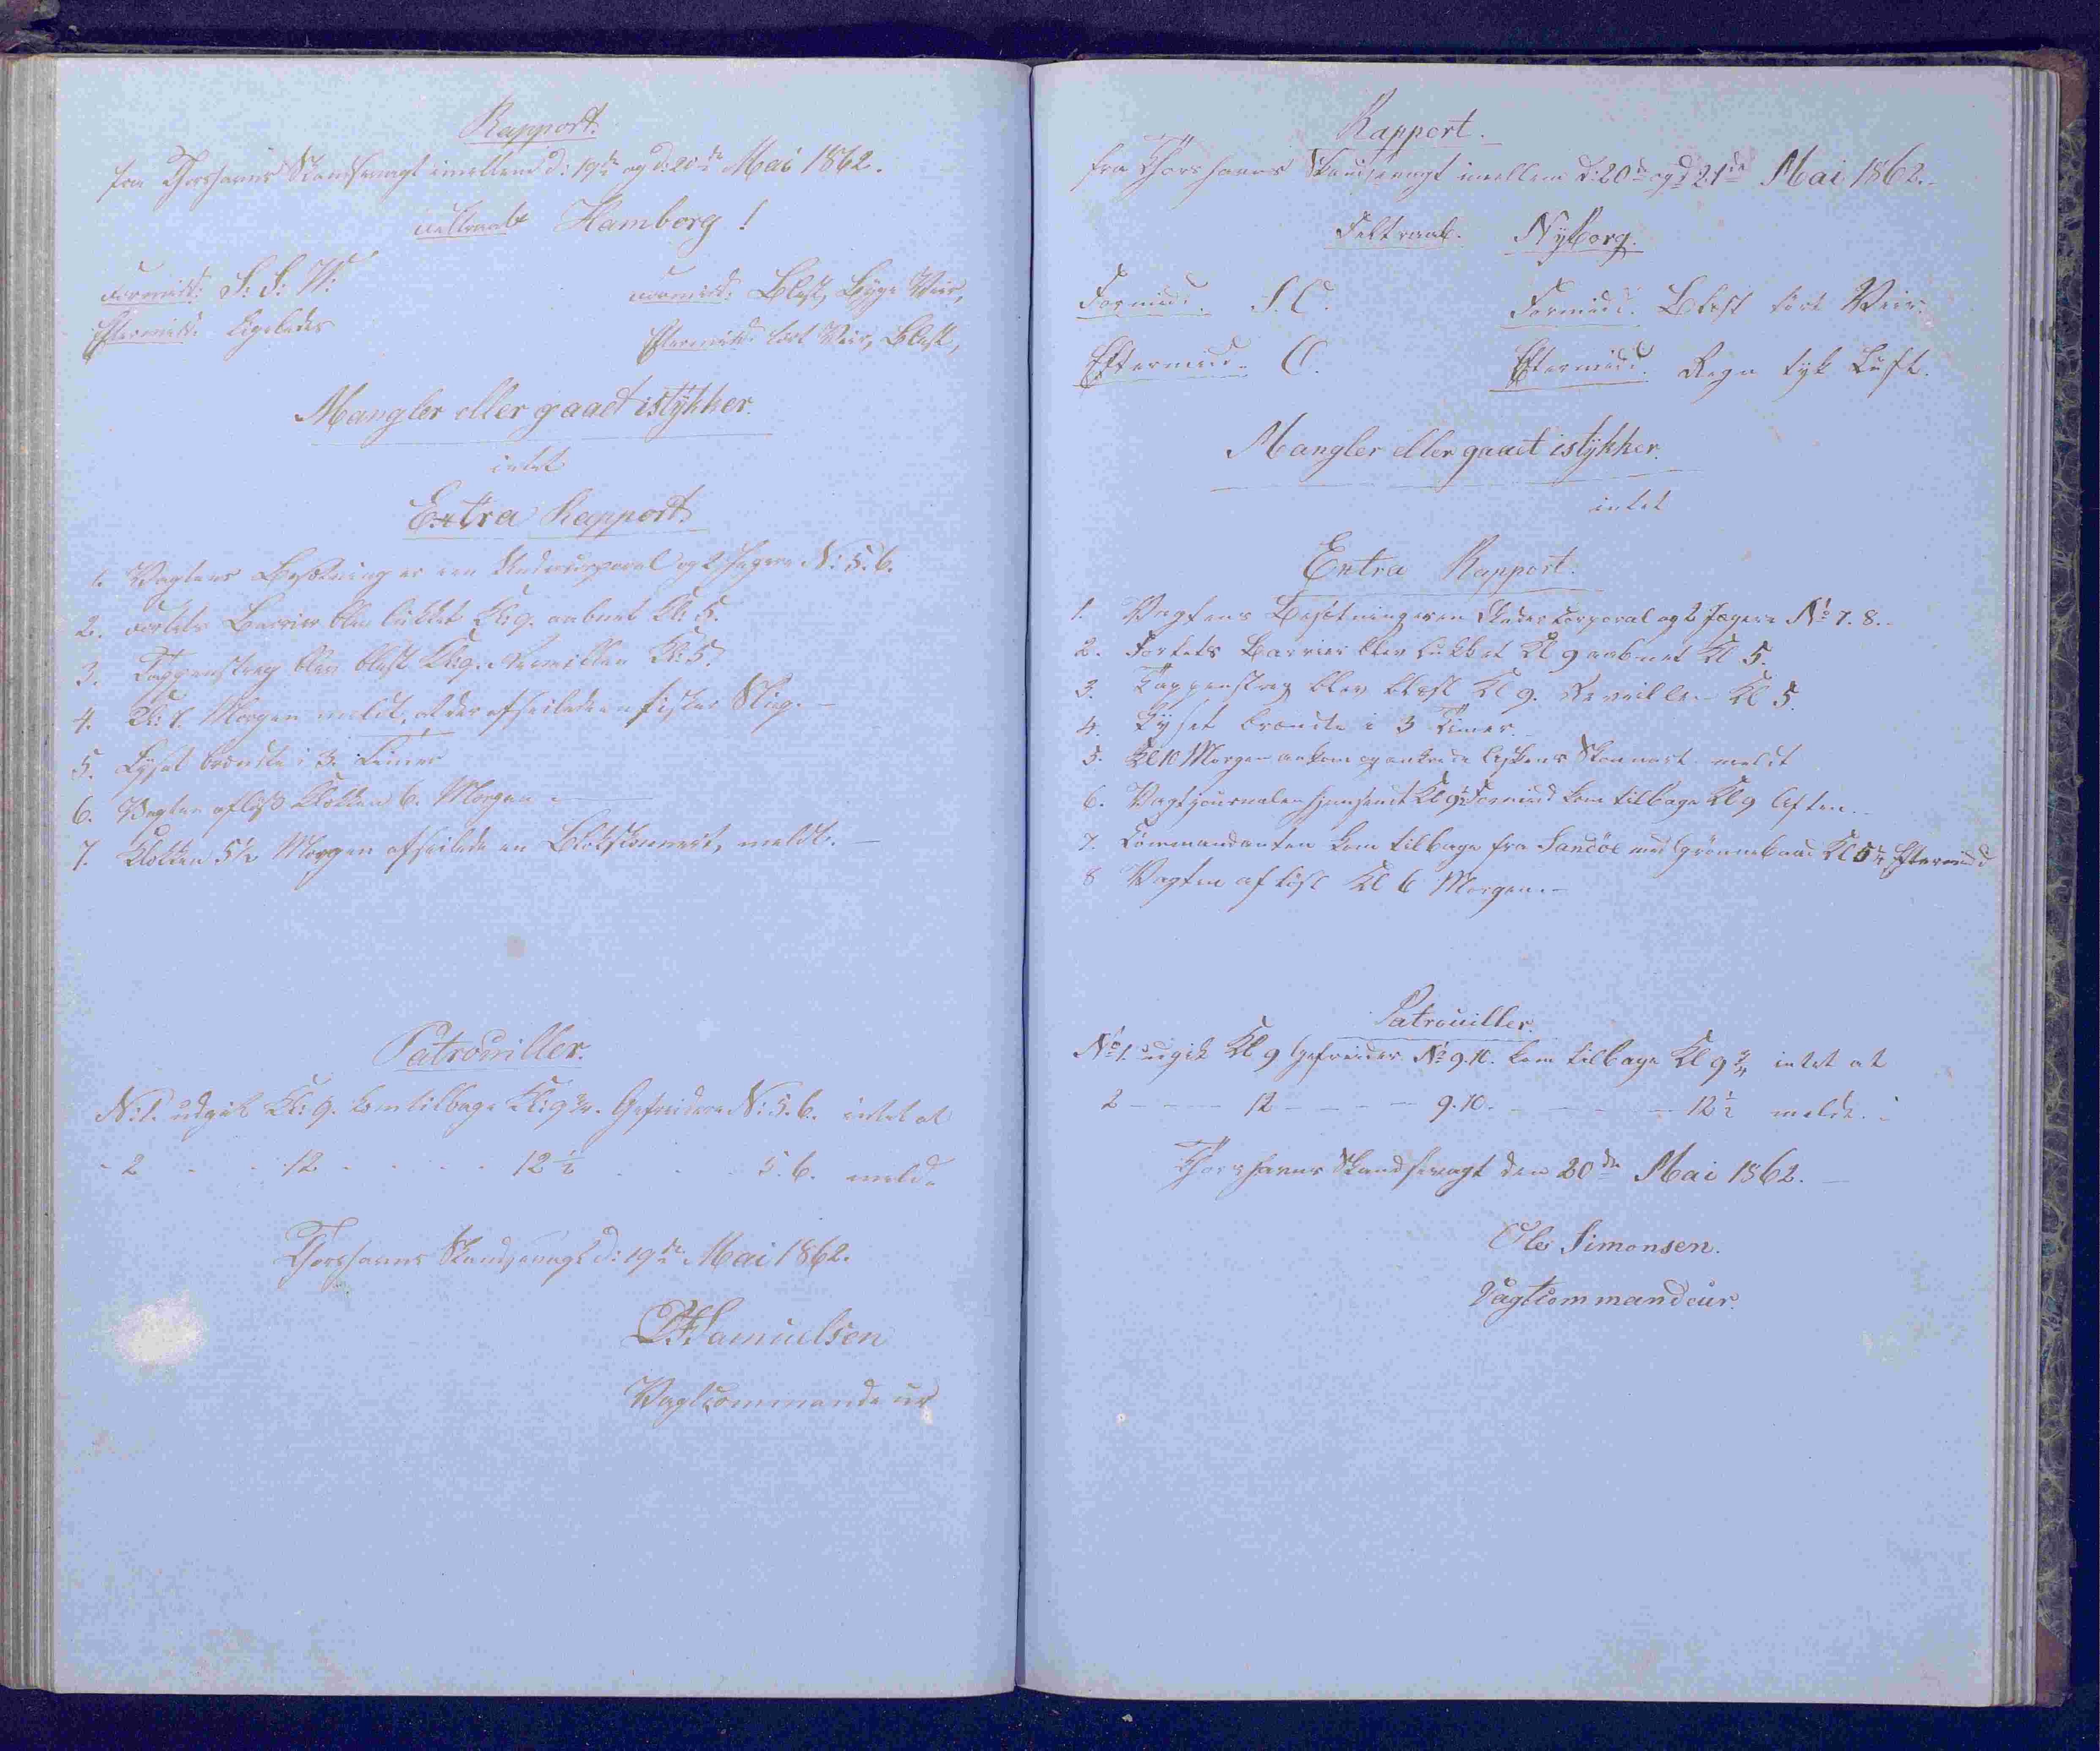 Rapport.
fra Thorshavns Skandsevagt imellem d: 19de og d: 20de Mai 1862.
Feltraab Hamborg!
Formidd: S: S: W: Formidd: Blæst, Byge Veir,
Eftermidd: Ligeledes Eftermidd: tört Veir, Blæst,
Mangler eller gaaet istÿkker.
intet
Extra Rapport.
1. Vagtens Besætning er een Undercorporal og 2 Jægere N: 5. 6.
2. Fortets Barrier blev lukket Kl: 9. aabnet Kl: 5.
3. Tappenstreg blev blæst Kl: 9. Reveillen Kl: 5.
4. Kl: 8. Morgen meldt, at der afseilede en fisker Slup.
5. Lyset brændte i 3. Timer
6. Vagten aflöst Klokken 6. Morgen.
7. Klokken 5½ Morgen afseilede en Skonnert, meldt.
Patrouiller.
N: 1. udgik Kl: 9. kom tilbage Kl: 9¾. Gefreidere N: 5. 6. intet at
- 2 - - 12 - - - - 12½ - - - 5. 6. melde
Thorshavns Skandsevagt d: 19de Mai 1862.
Samuelsen
Vagtcommandeur
Rapport.
fra Thorshavns Skandsevagt imellem d: 20de og d 21de Mai 1862.
Feltraab. Nÿborg.
Formidd. S.O. Formidd. Blæst tört Veir.
Eftermidd. O. Eftermidd. Regn tyk Luft.
Mangler eller gaaet istÿkker.
intet
Extra Rapport.
1. Vagtens Besætning er en Undercorporal og 2 Jægere No 7. 8.
2. Fortets Barrier blev lukket Kl 9 aabnet Kl 5.
3. Tappenstreg blev blæst Kl 9. Reveillen Kl 5.
4. Lyset brændte i 3 Timer.
5. Kl 10 Morgen ankom og ankrede Skonnert meldt
6. Vagtjournalen hjemsendt Kl 9½ Formidd kom tilbage Kl 9 Aften.
7. Commandanten kom tilbage fra Sandöe med Kl 5¼ Eftermidd
8 Vagten aflöst Kl 6 Morgen.
Patrouiller.
No 1. udgik Kl 9 Gefreider No 9. 10. kom tilbage Kl 9¾ intet at
2 - - - 12 - - - - 9. 10. - - - - 12½ melde.
Thorshavns Skandsevagt den 20de Mai 1862.
Ole Simonsen.
Vagtcommandeur.